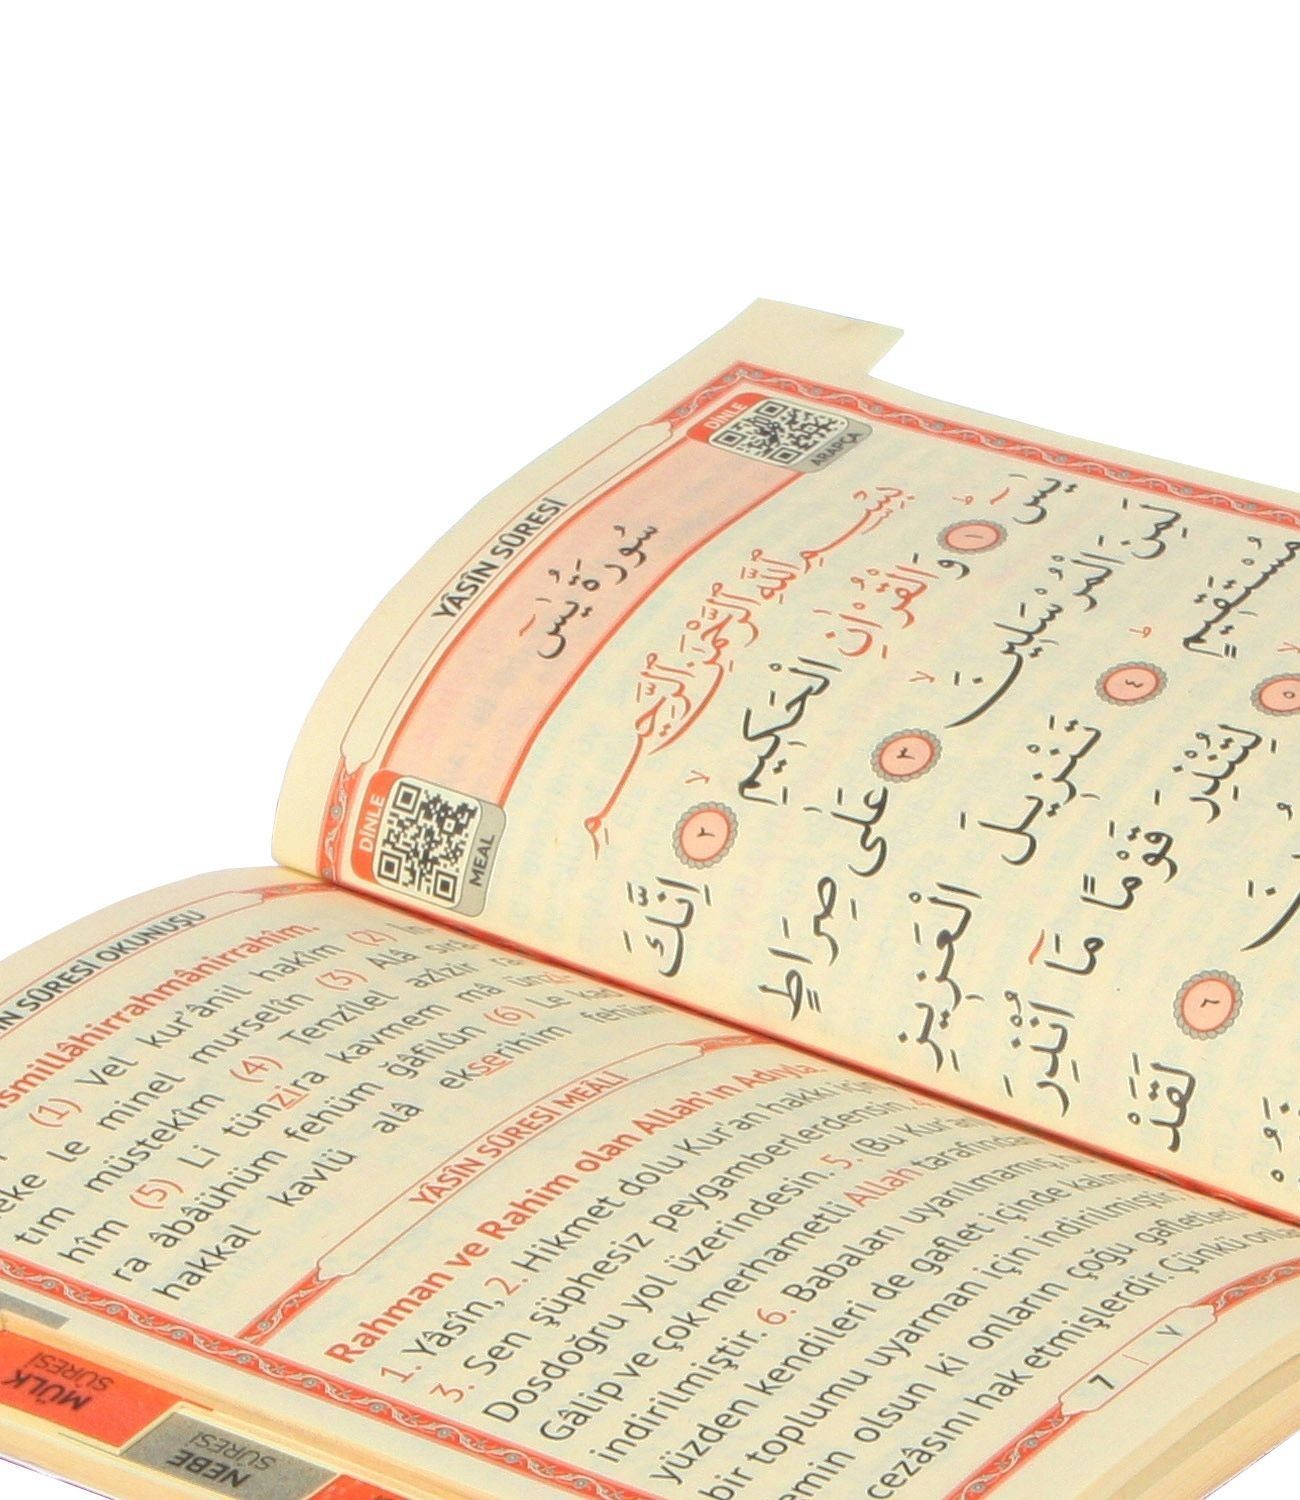 YÂSÎN SÛRESİ
DİNLE
ARAPÇA
سُورَةُ يٰسٓ
DİNLE
MEAL
بِسْمِ اللّٰهِ الرَّحْمٰنِ الرَّحِيمِ
يٰسٓ ۚ ١ وَالْقُرْاٰنِ الْحَكِيمِ ۙ ٢ اِنَّكَ
لَمِنَ الْمُرْسَلِينَ ۙ ٣ عَلٰى صِرَاطٍ
مُسْتَقِيمٍ ۜ ٤ تَنْزِيلَ الْعَزِيزِ
٥ لِتُنْذِرَ قَوْمًا مَٓا اُنْذِرَ
٦ لَقَدْ
SÛRESİ OKUNUŞU
(1) Vel kur'ânil hakîm (2) İn-
le minel murselîn (3) Alâ sırâ-
tım müstekîm (4) Tenzîlel azîzir ra-
hîm (5) Li tünzira kavmem mâ ün
ra âbâühüm fehüm ğâfilûn (6) Le kad
hakkal kavlü alâ ekserihim fehüm
YÂSÎN SÛRESİ MEÂLİ
Rahman ve Rahim olan Allah'ın Adıyla.
1. Yâsîn, 2. Hikmet dolu Kur'an hakkı için
3. Sen şüphesiz peygamberlerdensin.
Dosdoğru yol üzerindesin. 5. (Bu Kur'an
Gâlip ve çok merhametli Allah tarafından
indirilmiştir. 6. Babaları uyarılmamış,
yüzden kendileri de gaflet içinde
bir toplumu uyarman için indirilmiştir.
emin olsun ki onların çoğu
cezâsını hak etmişlerdir. Çünkü
7
٧
MÜLK
SÛRESİ
NEBE
SÛRESİ